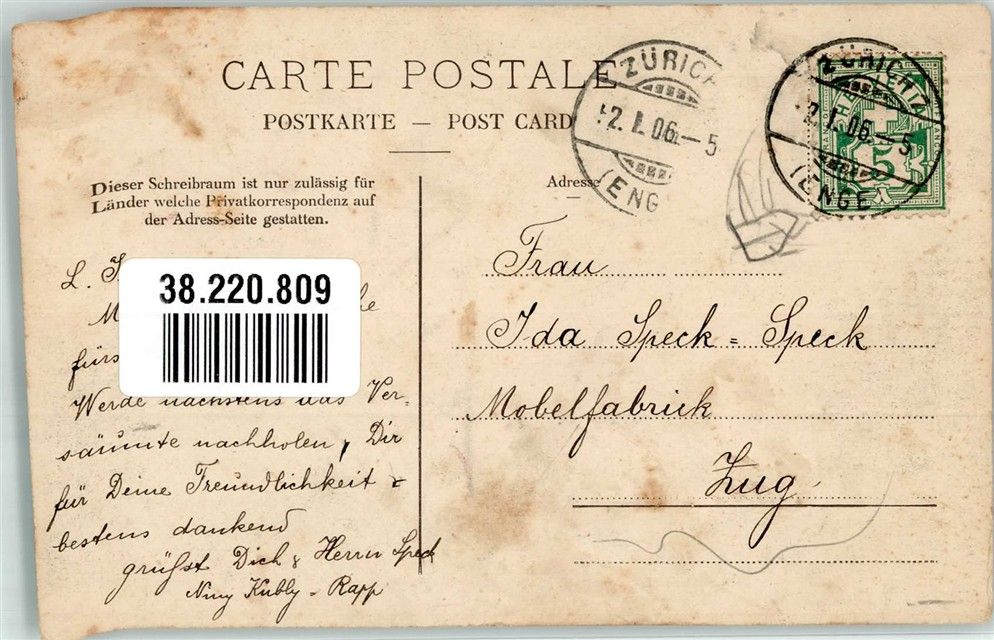 CARTE POSTALE
POSTKARTE — POST CARD
Dieser Schreibraum ist nur zulässig für
Länder welche Privatkorrespondenz auf
der Adress-Seite gestatten.
Adresse
ZÜRICH
2. I. 06.–5
(ENG
ZÜRICH
2. I. 06.–5
(ENGE
5
38.220.809
L.
fürs
Werde nächstens das Ver-
säumte nachholen, Dir
für Deine Freundlichkeit
bestens dankend
grüsst Dich & Herrn Speck
Niny Kubly-Rapp
Frau
Ida Speck-Speck
Mobelfabrick
Zug.